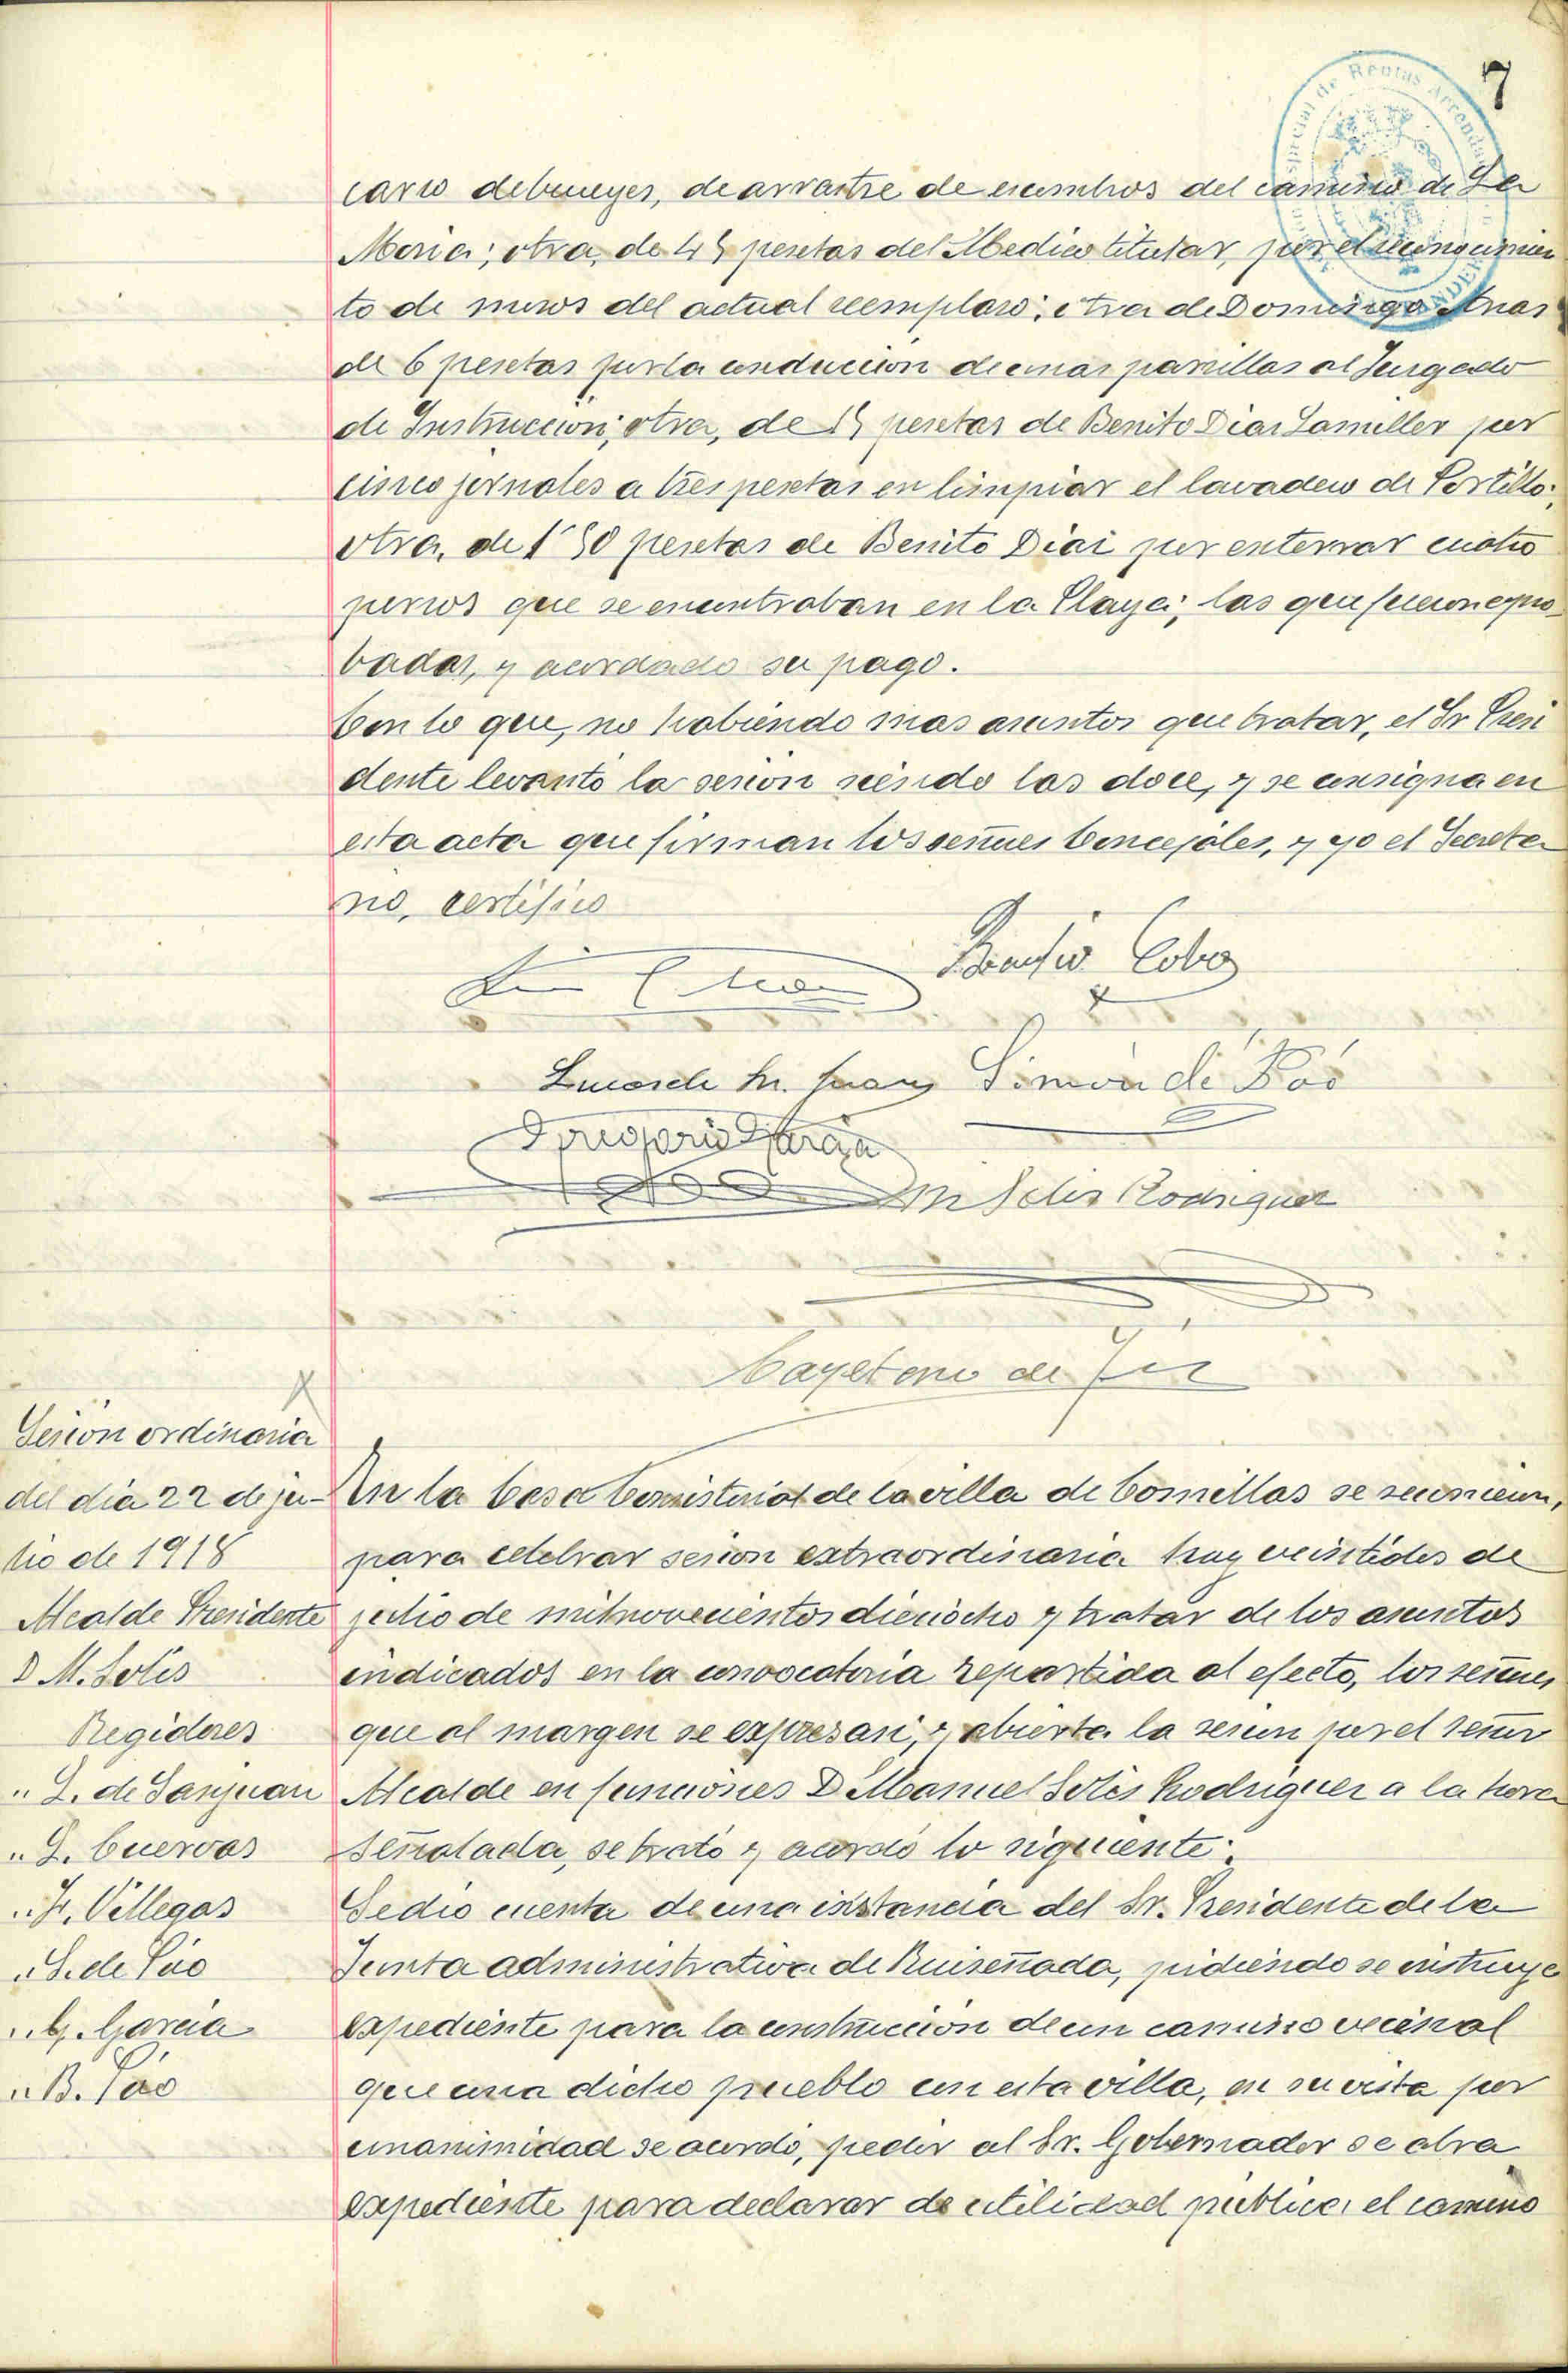 7
carro debueyes, dearrastre de escombros del camino de La
Moria; otra, de 45 pesetas del Medico titular, por el reconocimien
to de mozos del actual reemplazo; otra de Domingo
de 6 pesetas por la conducion de unas parrillas al Juzgado
de Instruccion; otra, de 15 pesetas de Benito Diaz Lamiller por
cinco jornales a tres pesetas en limpiar el lavadero de Portillo;
otra, de 1'50 pesetas de Benito Diaz por enterrar cuatro
perros que se encontraban en la Playa; las que fueron apro
badas, y acordado su pago.
Con lo que, no habiendo mas asuntos que tratar, el Sr Presi
dente levantó la sesion siendo las doce, y se consigna en
esta acta que firman los señores Concejales, y yo el Secreta
rio, certifico
Cobo
Simón de Póo
Gregorio Garcia
M Solis Rodriguez
Cayetano de
Sesión ordinaria
del dia 22 de ju-
lio de 1918
Alcalde Presidente
D M. Solis
Regidores
" L. de Sanjuan
" L. Cuervas
" Fr. Villegas
" S. de Póo
" G. Garcia
" B. Póo
En la Casa Consistorial de la villa de Comillas se reunieron,
para celebrar sesion extraordinaria hoy veintidos de
julio de mil novecientos dieciocho y tratar de los asuntos
indicados en la convocatoria repartida al efecto, los señores
que al margen se expresan, y abierta la sesion por el señor
Alcalde en funciones D Manuel Solis Rodriguez a la hora
señalada, se trató y acordó lo siguiente:
Se dio cuenta de una instancia del Sr. Presidente de la
Junta administrativa de Ruiseñada, pidiendo se instruya
expediente para la construccion de un camino vecinal
que una dicho pueblo con esta villa, en su vista por
unanimidad se acordó, pedir al Sr. Gobernador se abra
expediente para declarar de utilidad publica, el camino